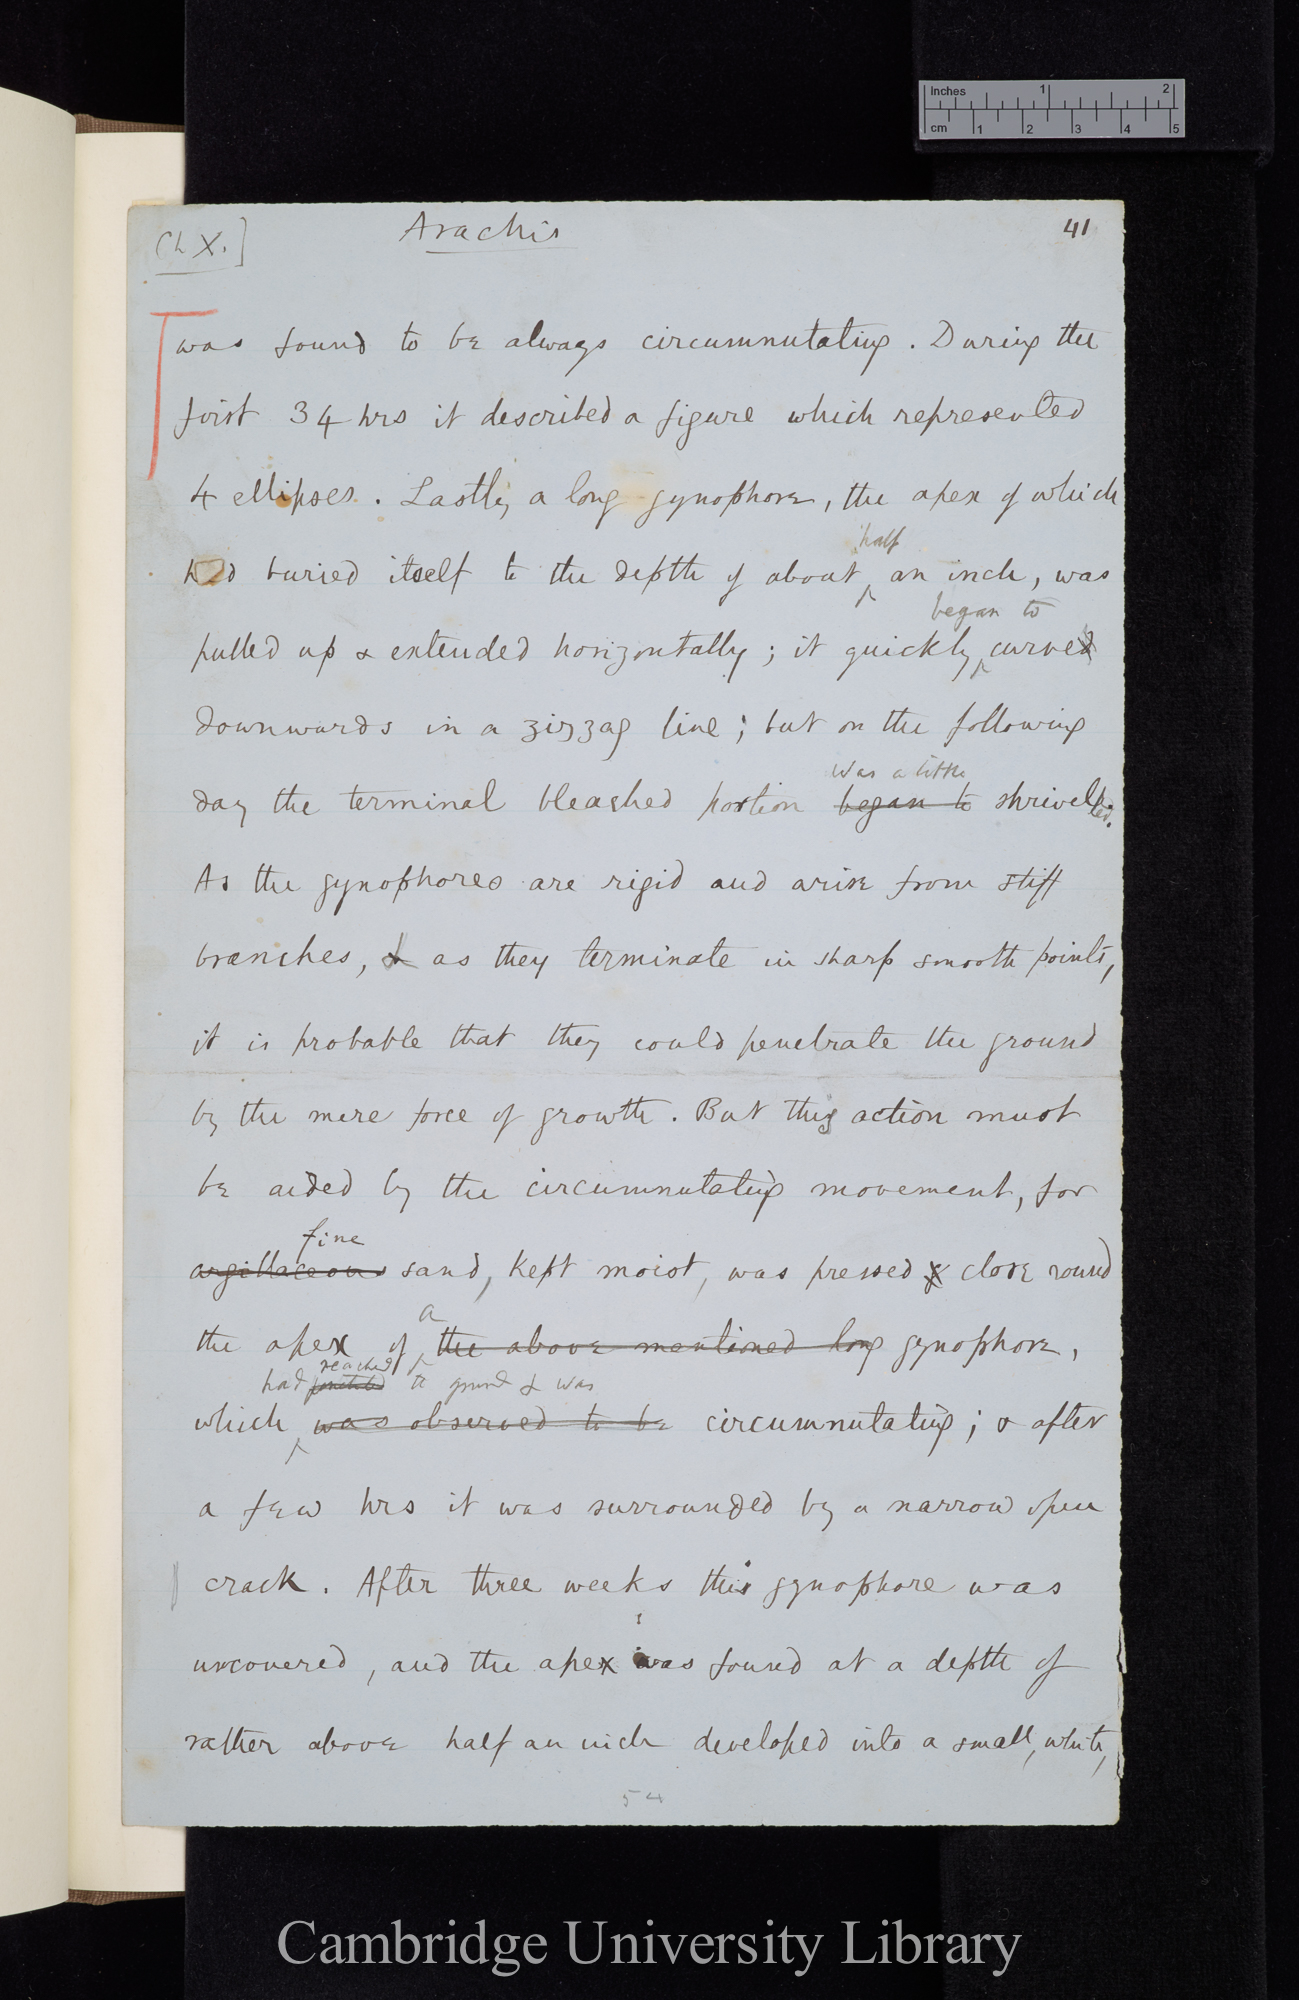 Inches 1 2
cm 1 2 3 4 5
Ch X.] Arachis 41
was found to be always circumnutating. During the
first 34 hrs it described a figure which represented
4 ellipses. Lastly, a long gynophore, the apex of which
half
had buried itself to the depth of about an inch, was
began to
pulled up & extended horizontally; it quickly curved
downwards in a zigzag line; but on the following
was a little
day the terminal bleached portion began to shrivelled.
As the gynophores are rigid and arise from stiff
branches, & as they terminate in sharp smooth points,
it is probable that they could penetrate the ground
by the mere force of growth. But this action must
be aided by the circumnutating movement, for
fine
argillaceous sand, kept moist, was pressed close round
a
the apex of the above mentioned long gynophore,
reached
had the ground & was
which was observed to be circumnutating; & after
a few hrs it was surrounded by a narrow open
crack. After three weeks this gynophore was
uncovered, and the apex was found at a depth of
rather above half an inch developed into a small, white,
54
Cambridge University Library